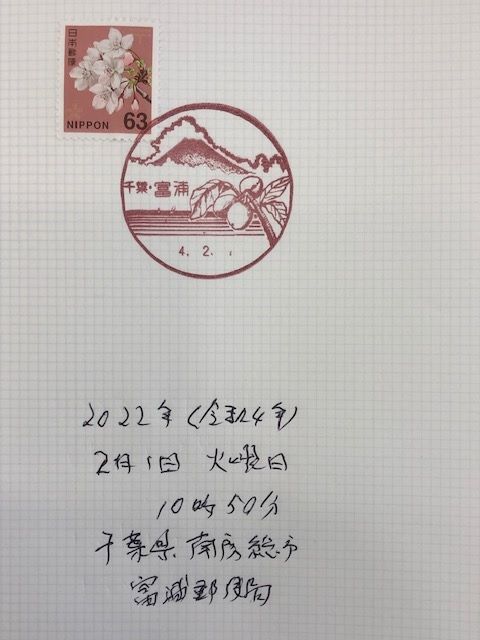 日本郵便
NIPPON 63
千葉・富浦
4. 2. 1
2022年(令和4年)
2月1日 火曜日
10時50分
千葉県南房総市
富浦郵便局